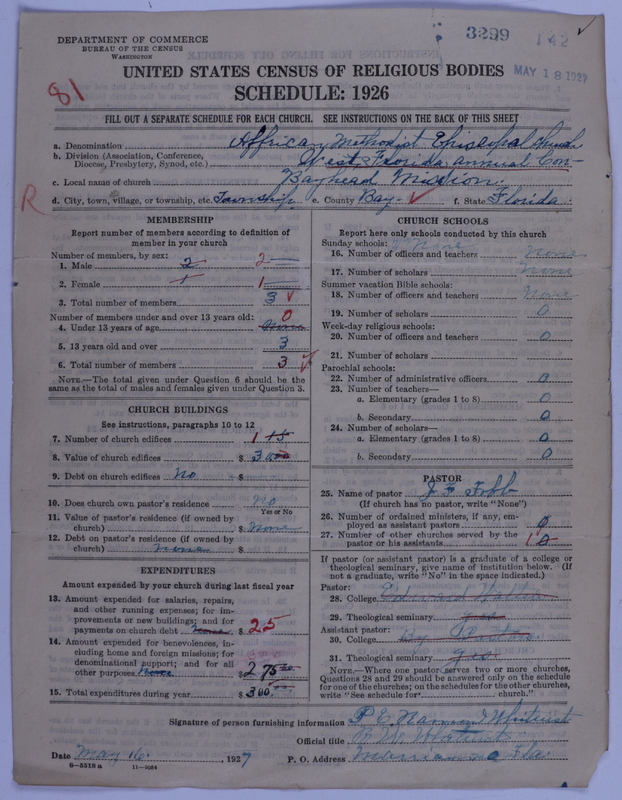 DEPARTMENT OF COMMERCE
BUREAU OF THE CENSUS
WASHINGTON
3299 142
MAY 18 1927
81
UNITED STATES CENSUS OF RELIGIOUS BODIES
SCHEDULE: 1926
FILL OUT A SEPARATE SCHEDULE FOR EACH CHURCH. SEE INSTRUCTIONS ON THE BACK OF THIS SHEET
a. Denomination African Methodist Episcopal Church
b. Division (Association, Conference, Diocese, Presbytery, Synod, etc.) West Florida annual Con-
c. Local name of church Bayhead Mission.
R
d. City, town, village, or township, etc. Township e. County Bay f. State Florida
MEMBERSHIP
Report number of members according to definition of
member in your church
Number of members, by sex:
1. Male 2 2
2. Female 1 1
3. Total number of members 3
Number of members under and over 13 years old: 0
4. Under 13 years of age None
5. 13 years old and over 3
6. Total number of members 3
NOTE.—The total given under Question 6 should be the
same as the total of males and females given under Question 3.
CHURCH BUILDINGS
See instructions, paragraphs 10 to 12
7. Number of church edifices 1
8. Value of church edifices $
9. Debt on church edifices No $
10. Does church own pastor's residence No
Yes or No
11. Value of pastor's residence (if owned by
church) $ None
12. Debt on pastor's residence (if owned by
church) none $
EXPENDITURES
Amount expended by your church during last fiscal year
13. Amount expended for salaries, repairs,
and other running expenses; for im-
provements or new buildings; and for
payments on church debt None $ 25
14. Amount expended for benevolences, in-
cluding home and foreign missions; for
denominational support; and for all
other purposes None $ 275
15. Total expenditures during year $ 300
CHURCH SCHOOLS
Report here only schools conducted by this church
Sunday schools: None
16. Number of officers and teachers None
17. Number of scholars None
Summer vacation Bible schools:
18. Number of officers and teachers None
19. Number of scholars 0
Week-day religious schools:
20. Number of officers and teachers 0
21. Number of scholars 0
Parochial schools:
22. Number of administrative officers 0
23. Number of teachers—
a. Elementary (grades 1 to 8) 0
b. Secondary 0
24. Number of scholars—
a. Elementary (grades 1 to 8) 0
b. Secondary 0
PASTOR
25. Name of pastor
(If church has no pastor, write "None")
26. Number of ordained ministers, if any, em-
ployed as assistant pastors 0
27. Number of other churches served by the
pastor or his assistants 1 0
If pastor (or assistant pastor) is a graduate of a college or
theological seminary, give name of institution below. (If
not a graduate, write "No" in the space indicated.)
Pastor:
28. College Edward Waters
29. Theological seminary yes
Assistant pastor:
30. College
31. Theological seminary yes
NOTE.—Where one pastor serves two or more churches,
Questions 28 and 29 should be answered only on the schedule
for one of the churches; on the schedules for the other churches,
write "See schedule for church."
Signature of person furnishing information
Official title
Date May 16, 1927 P. O. Address Marianna Fla.
8—5518 a 11—9064